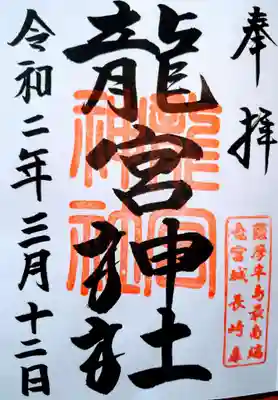 奉拝
龍宮神社
令和二年三月十二日
龍宮
神社
薩摩半島最南端
竜宮城長崎鼻